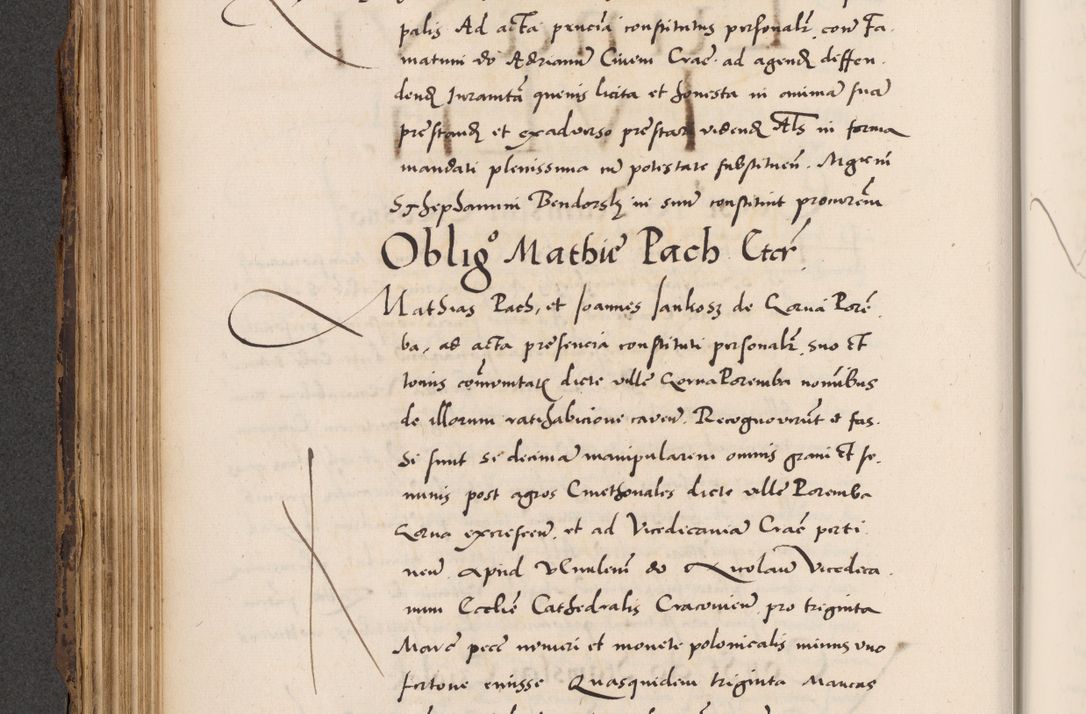 palis Ad acta pnncia constitutus personalr, coram Fa.
matum do Adrianum Civem Crac. ad agend diffen.
dend Juramta quevis licita et honesta in animas suas
prestand et exadverso prestari vidend Als in forma
mandati plenissima cum potestate substituen. Mgrum
Stephanum Bendorsky in suum constituit procurem
Obligo Mathie Pach Ctcr
Mathias Pach, et Joannes Jankosz de Gorna Porem
ba, ad acta presencia constituti personalr, suo Et
tocius comunitatis dicte ville Gorna Poremba nomibus
de illorum ratihabicione caven. Recognoverunt et fas.
si sunt se decimam manipularem omnis grani Et se.
minis post agros Cmethonales dicte ville Poremba
Gorna excrescen. et ad Vicedecanam Crac perti
nen. Apud Vbilem do Nicolaum Vicedeca
num Ecclie Cathedralis Cracovien, pro triginta
Marc pecc numeri et monete polonicalis minus uno
fertone emisse Quasquidem triginta Marcas